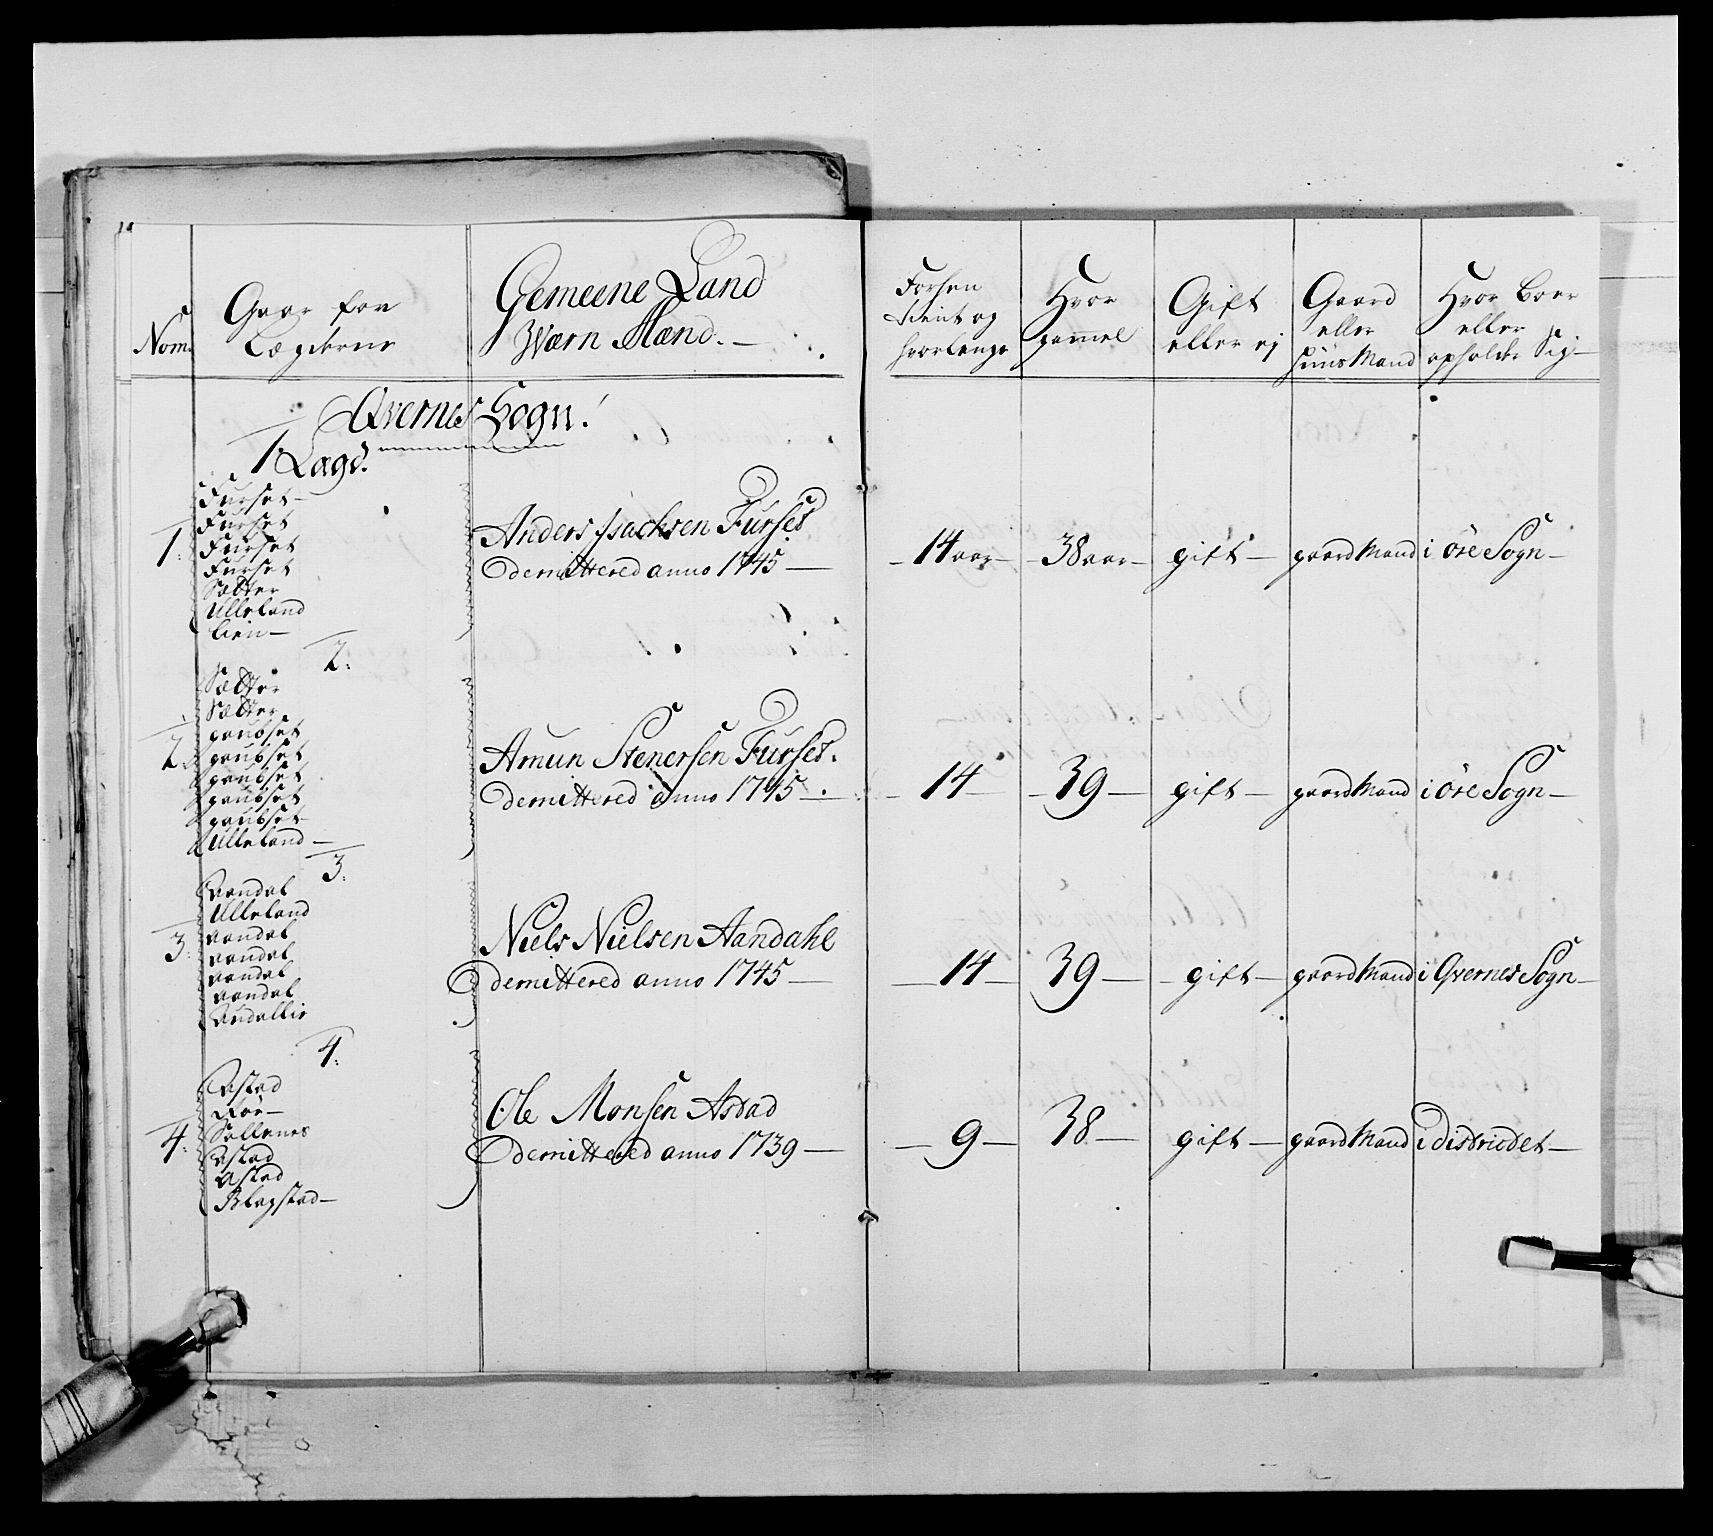 Nom:
Gaar for
Lægderne
Gemeene Land
Wærn Mænd.
Forhen
tient og
hvorlenge
Hvor
gammel
Gift
eller ej
Gaard
eller
huusMand
Hvor boer
eller
opholder Sig
Qvernes Sogn!
1. Lægd.
Furset
Furset
1. Furset
Furset
Sætter
Ulleland
Lien
Anders Jsachsen Furset
demittered anno 1745
14 aar 38 aar gift gaardMand i öre Sogn
2.
Sætter
Sætter
gaubset
2. gaubset
gaubset
gaubset
gaubset
Ulleland
Amun Stenersen Furset.
demittered anno 1745
14 39 gift gaardMand i öre Sogn
3.
Aandal
Ulleland
3. Aandal
Aandal
Aandal
Aandal
Andallie
Niels Nielsen Aandahl
demittered anno 1745
14 39 gift gaardMand i Qvernes Sogn
4.
Astad
Röe
Sollenes
4. Astad
Astad
Blegstad
Ole Monsen Astad
demittered anno 1739
9 38 gift gaardMand i districtet